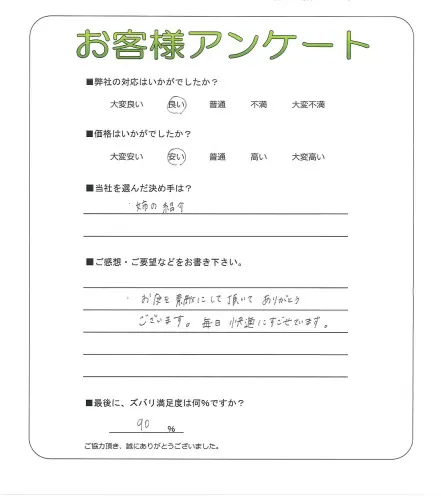 お客様アンケート
■弊社の対応はいかがでしたか?
大変良い 良い 普通 不満 大変不満
■価格はいかがでしたか?
大変安い 安い 普通 高い 大変高い
■当社を選んだ決め手は?
・姉の紹介
■ご感想・ご要望などをお書き下さい。
・お庭を素敵にして頂いて ありがとう
ございます。毎日 快適にすごせています。
■最後に、ズバリ満足度は何%ですか?
90 %
ご協力頂き、誠にありがとうございました。